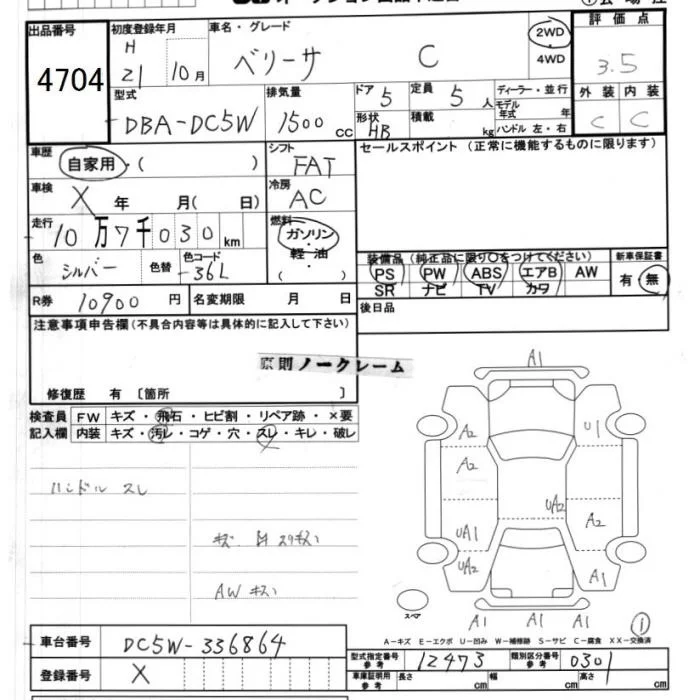 出品番号
4704
初度登録年月
H
21 10月
車名・グレード
ベリーサ C
2WD
4WD
評価点
3.5
外装 内装
C C
型式
DBA-DC5W
排気量
1500 cc
ドア 5
定員 5 人
形状 HB
積載 kg
ディーラー・並行
モデル
年式 年
ハンドル 左・右
車歴
自家用・( )
シフト
FAT
セールスポイント (正常に機能するものに限ります)
車検
X 年 月( 日)
冷房
AC
走行
10万7千030km
燃料
ガソリン
軽油
( )
色
シルバー
色替
色コード
36L
装備品 (純正品に限り○をつけてください)
PS PW ABS エアB AW
SR ナビ TV カワ
新車保証書
有・無
R券 10900 円
名変期限 月 日
後日品
注意事項申告欄(不具合内容等は具体的に記入して下さい)
原則ノークレーム
修復歴 有 〔箇所 〕
検査員
記入欄
FW キズ・飛石・ヒビ割・リペア跡・×要
内装 キズ・汚レ・コゲ・穴・スレ・キレ・破レ
ハンドル スレ
AW キズ
A1
A2 U1
A2
UA2
UA1 A2
UA2 A1
スペア
A1 A1 A1
A-キズ E-エクボ U-凹み W-補修跡 S-サビ C-腐食 XX-交換済
車台番号 DC5W-336864
登録番号 X
型式指定番号
参考
12473
類別区分番号
参考
0301
車庫証明用
参考
長さ cm 幅 cm 高さ cm